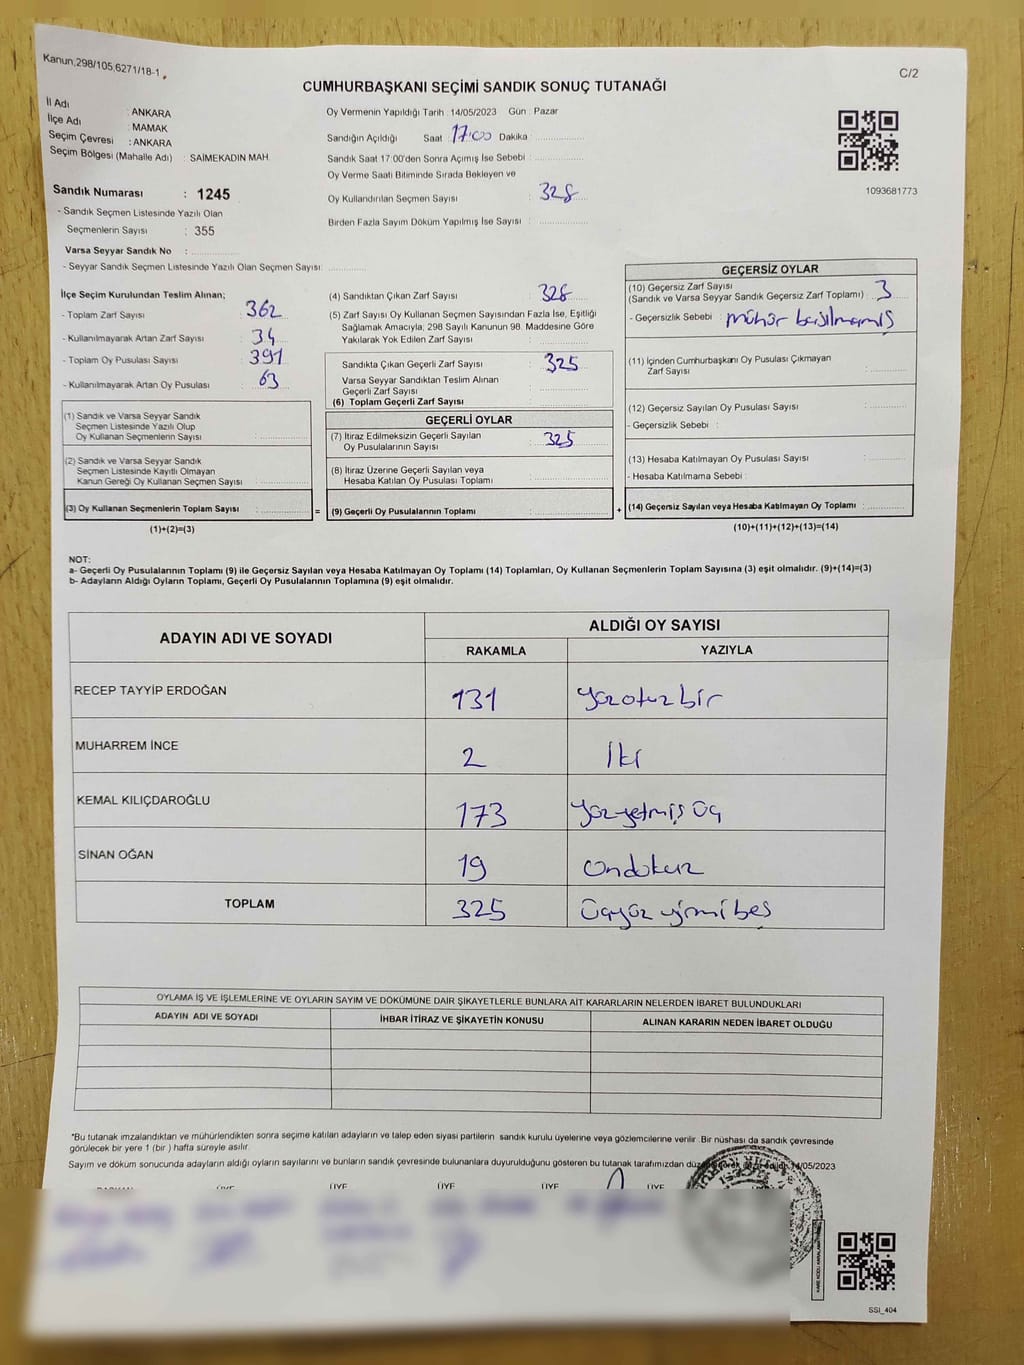 Kanun,298/105,6271/18-1
C/2
CUMHURBAŞKANI SEÇİMİ SANDIK SONUÇ TUTANAĞI
İl Adı : ANKARA
İlçe Adı : MAMAK
Seçim Çevresi : ANKARA
Seçim Bölgesi (Mahalle Adı) : SAİMEKADIN MAH.
Sandık Numarası : 1245
- Sandık Seçmen Listesinde Yazılı Olan
Seçmenlerin Sayısı : 355
Varsa Seyyar Sandık No :
- Seyyar Sandık Seçmen Listesinde Yazılı Olan Seçmen Sayısı:
Oy Vermenin Yapıldığı Tarih : 14/05/2023 Gün : Pazar
Sandığın Açıldığı Saat 17:00 Dakika
Sandık Saat 17:00'den Sonra Açımış İse Sebebi :
Oy Verme Saati Bitiminde Sırada Bekleyen ve
Oy Kullandırılan Seçmen Sayısı : 328
Birden Fazla Sayım Döküm Yapılmış İse Sayısı :
1093681773
İlçe Seçim Kurulundan Teslim Alınan;
- Toplam Zarf Sayısı : 362
- Kullanılmayarak Artan Zarf Sayısı : 34
- Toplam Oy Pusulası Sayısı : 391
- Kullanılmayarak Artan Oy Pusulası : 63
(1) Sandık ve Varsa Seyyar Sandık
Seçmen Listesinde Yazılı Olup
Oy Kullanan Seçmenlerin Sayısı :
(2) Sandık ve Varsa Seyyar Sandık
Seçmen Listesinde Kayıtlı Olmayan
Kanun Gereği Oy Kullanan Seçmen Sayısı :
(3) Oy Kullanan Seçmenlerin Toplam Sayısı :
(1)+(2)=(3)
(4) Sandıktan Çıkan Zarf Sayısı : 328
(5) Zarf Sayısı Oy Kullanan Seçmen Sayısından Fazla İse, Eşitliği
Sağlamak Amacıyla, 298 Sayılı Kanunun 98. Maddesine Göre
Yakılarak Yok Edilen Zarf Sayısı :
Sandıkta Çıkan Geçerli Zarf Sayısı : 325
Varsa Seyyar Sandıktan Teslim Alınan
Geçerli Zarf Sayısı :
(6) Toplam Geçerli Zarf Sayısı :
GEÇERLİ OYLAR
(7) İtiraz Edilmeksizin Geçerli Sayılan
Oy Pusulalarının Sayısı : 325
(8) İtiraz Üzerine Geçerli Sayılan veya
Hesaba Katılan Oy Pusulası Toplamı :
= (9) Geçerli Oy Pusulalarının Toplamı :
GEÇERSİZ OYLAR
(10) Geçersiz Zarf Sayısı
(Sandık ve Varsa Seyyar Sandık Geçersiz Zarf Toplamı) : 3
- Geçersizlik Sebebi : mühür basılmamış
(11) İçinden Cumhurbaşkanı Oy Pusulası Çıkmayan
Zarf Sayısı :
(12) Geçersiz Sayılan Oy Pusulası Sayısı :
- Geçersizlik Sebebi :
(13) Hesaba Katılmayan Oy Pusulası Sayısı :
- Hesaba Katılmama Sebebi :
+ (14) Geçersiz Sayılan veya Hesaba Katılmayan Oy Toplamı :
(10)+(11)+(12)+(13)=(14)
NOT:
a- Geçerli Oy Pusulalarının Toplamı (9) ile Geçersiz Sayılan veya Hesaba Katılmayan Oy Toplamı (14) Toplamları, Oy Kullanan Seçmenlerin Toplam Sayısına (3) eşit olmalıdır. (9)+(14)=(3)
b- Adayların Aldığı Oyların Toplamı, Geçerli Oy Pusulalarının Toplamına (9) eşit olmalıdır.
ADAYIN ADI VE SOYADI
ALDIĞI OY SAYISI
RAKAMLA YAZIYLA
RECEP TAYYİP ERDOĞAN 131 yüzotuzbir
MUHARREM İNCE 2 İki
KEMAL KILIÇDAROĞLU 173 yüzyetmiş üç
SİNAN OĞAN 19 Ondokuz
TOPLAM 325 Üçyüz yirmibeş
OYLAMA İŞ VE İŞLEMLERİNE VE OYLARIN SAYIM VE DÖKÜMÜNE DAİR ŞİKAYETLERLE BUNLARA AİT KARARLARIN NELERDEN İBARET BULUNDUKLARI
ADAYIN ADI VE SOYADI İHBAR İTİRAZ VE ŞİKAYETİN KONUSU ALINAN KARARIN NEDEN İBARET OLDUĞU
*Bu tutanak imzalandıktan ve mühürlendikten sonra seçime katılan adayların ve talep eden siyasi partilerin sandık kurulu üyelerine veya gözlemcilerine verilir. Bir nüshası da sandık çevresinde
görülecek bir yere 1 (bir ) hafta süreyle asılır.
Sayım ve döküm sonucunda adayların aldığı oyların sayılarını ve bunların sandık çevresinde bulunanlara duyurulduğunu gösteren bu tutanak tarafımızdan 14/05/2023
BAŞKAN ÜYE ÜYE ÜYE ÜYE ÜYE
SSI_404